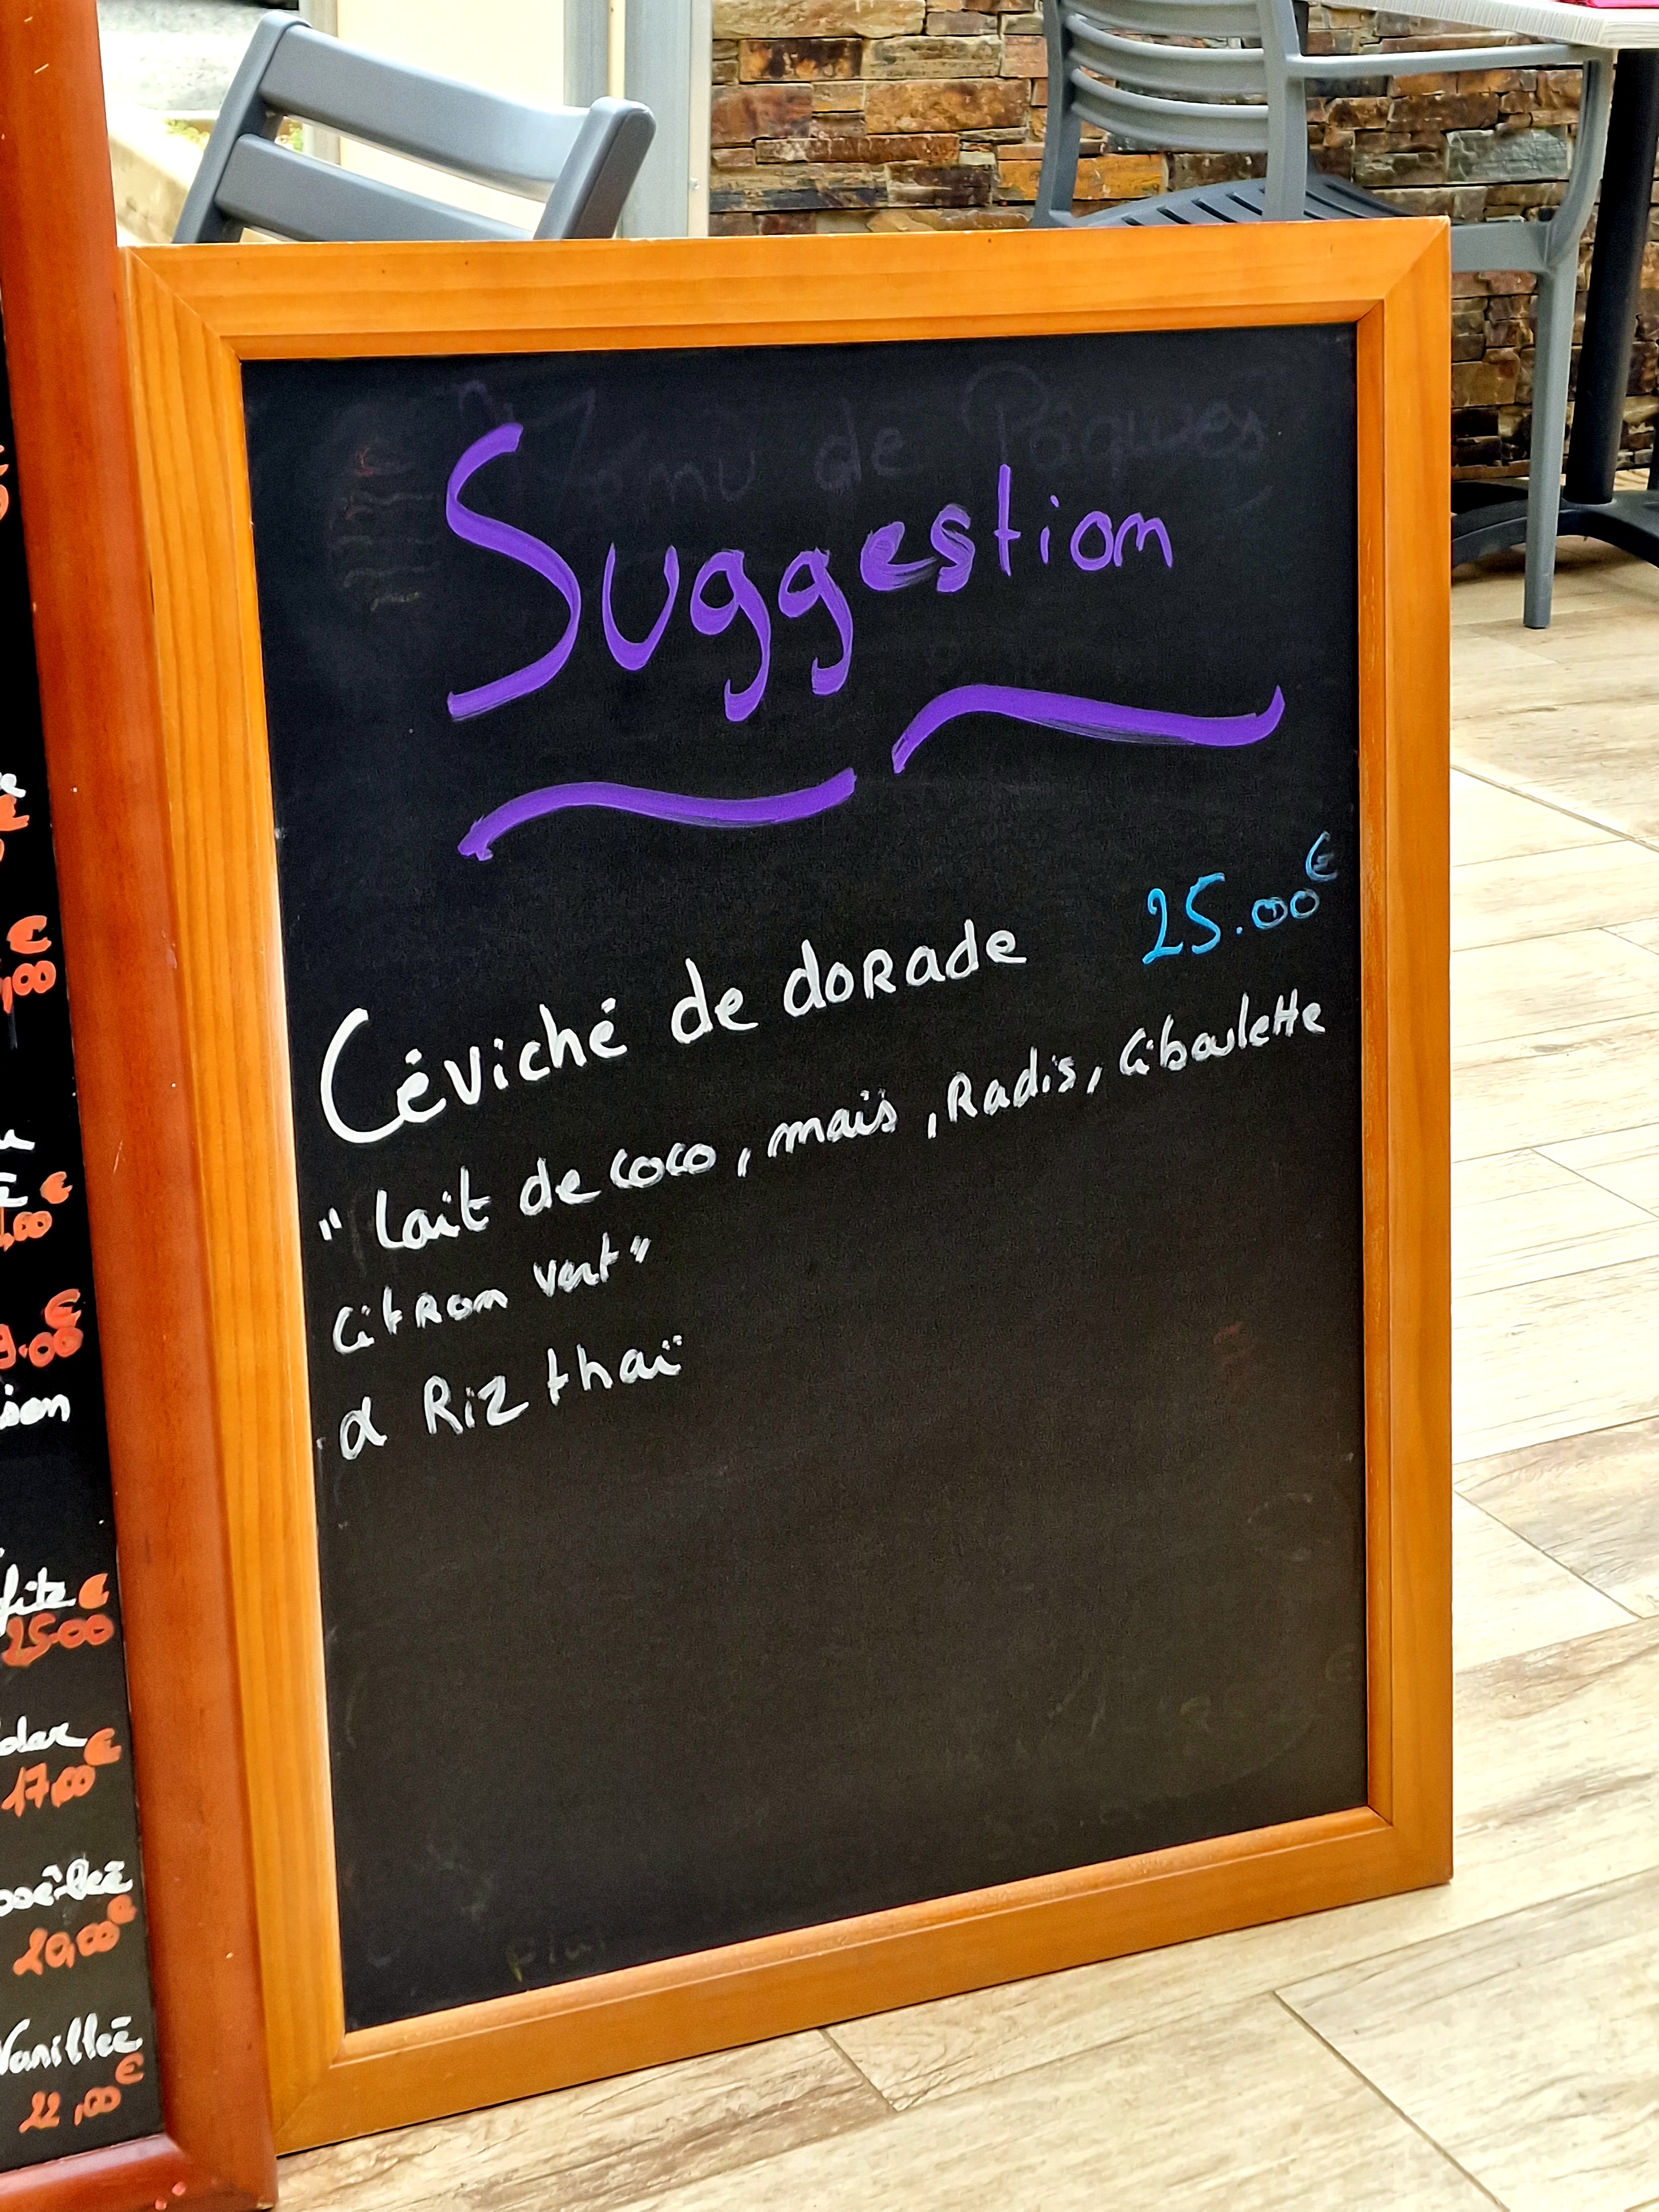 Menu de Pâques
Suggestion
25.00€
Céviché de dorade
" lait de coco, maïs, Radis, Ciboulette
Citron vert"
& Riz thaï
€
,00
€
,00
9.00
€
25.00
€
17,00
€
20,00
€
Vanillée
22,00
€